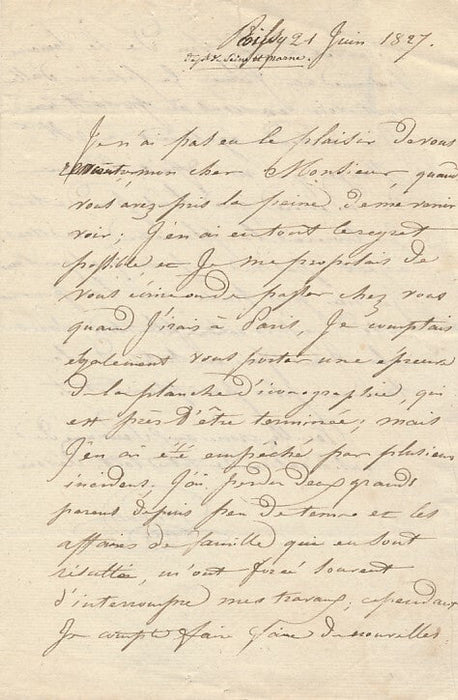 21 Juin 1827.
dépt de Seine et Marne.
Je n'ai pas eu le plaisir de vous
mon cher Monsieur, quand
vous avez pris la peine de me venir
voir; J'en ai eu tout le regret
possible, et Je me proposais de
vous écrire ou de passer chez vous
quand J'irais à Paris, Je comptais
egalement vous porter une epreuve
de la planche d'iconographie, qui
est près d'être terminée; mais
J'en ai été empêché par plusieurs
incidens. J'ai perdu deux grands
parens depuis peu de tems et les
affaires de famille qui en sont
résultée, m'ont forcé souvent
d'interrompre mes travaux, cependant
Je compte faire de nouvelles